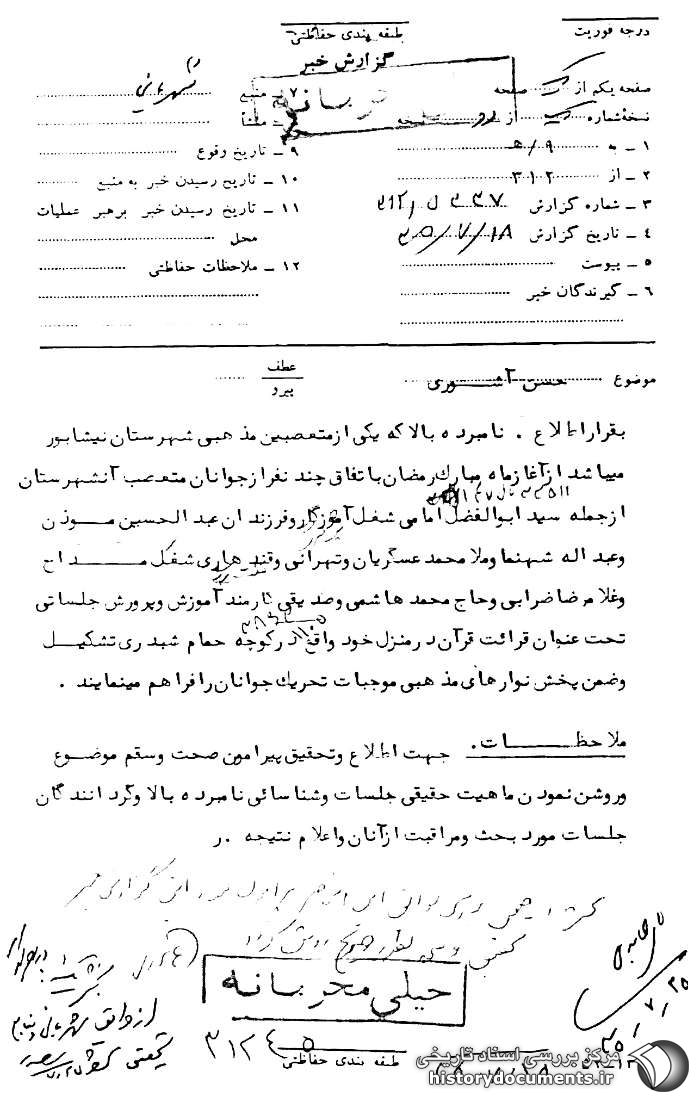 درجه فوریت
طبقه بندی حفاظتی
گزارش خبر
خیلی محرمانه
صفحه یکم از یک صفحه
نسخهٔ شماره یک از دو نسخه
۱ – به ۹/ه‍
۲ – از ۳۱۲
۳ – شماره گزارش
۴ – تاریخ گزارش ۳۵/۷/۱۸
۵ – پیوست
۶ – گیرندگان خبر
۷ – منبع شهربانی
۸ – منشأ
۹ – تاریخ وقوع
۱۰ – تاریخ رسیدن خبر به منبع
۱۱ – تاریخ رسیدن خبر برهبر عملیات
محل
۱۲ – ملاحظات حفاظتی
موضوع حسن آشوری
عطف
پیرو
بقرار اطلاع . نامبرده بالا که یکی از متعصبین مذهبی شهرستان نیشابور
میباشد از آغاز ماه مبارك رمضان با تفاق چند نفر از جوانان متعصب آنشهرستان
ازجمله سید ابوالفضل امامی شغل آموزگار و فرزندان عبدالحسین موذن
وعبداله شهنما وملا محمد عسگریان وتهرانی وقندهاری شغل مداح
وغلامرضا ضرابی وحاج محمد هاشمی وصدیقی کارمند آموزش وپرورش جلساتی
تحت عنوان قرائت قرآن در منزل خود واقع در کوچه حمام شبدری تشکیل
وضمن پخش نوارهای مذهبی موجبات تحریك جوانان را فراهم مینمایند .
ملاحظات . جهت اطلاع وتحقیق پیرامون صحت وسقم موضوع
وروشن نمودن ماهیت حقیقی جلسات وشناسائی نامبرده بالا وگردانندگان
جلسات مورد بحث ومراقبت از آنان واعلام نتیجه . ر
خیلی محرمانه
طبقه بندی حفاظتی
۳۱۲۴۵
مرکز بررسی اسناد تاریخی
historydocuments.ir